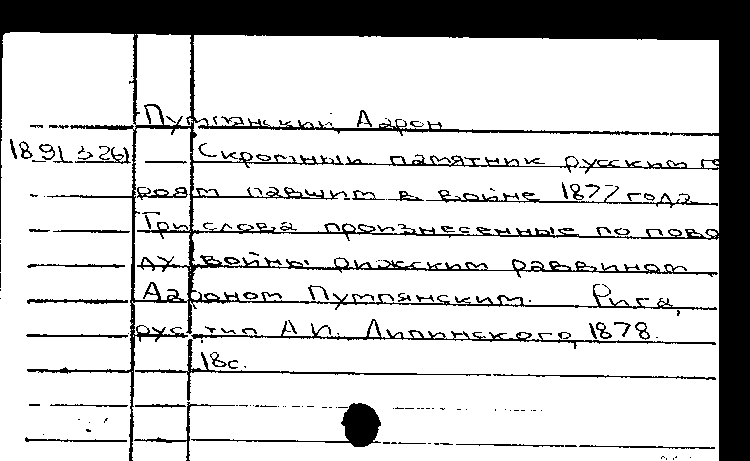 Пумпянский, Аарон
1891 з 261 Скромный памятник русским ге
роям павшим в войне 1877 года
Три слова произнесенные по пово
ду войны рижским раввином
Аароном Пумпянским. Рига,
рус. тип А.И. Липинского, 1878.
18с.